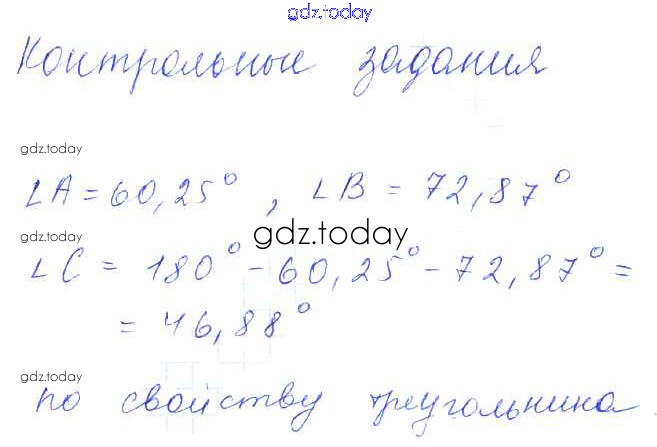 gdz.today
Контрольные задания
gdz.today
∠A = 60,25°, ∠B = 72,87°
gdz.today
gdz.today
∠C = 180° - 60,25° - 72,87° =
= 46,88°
gdz.today
по свойству треугольника